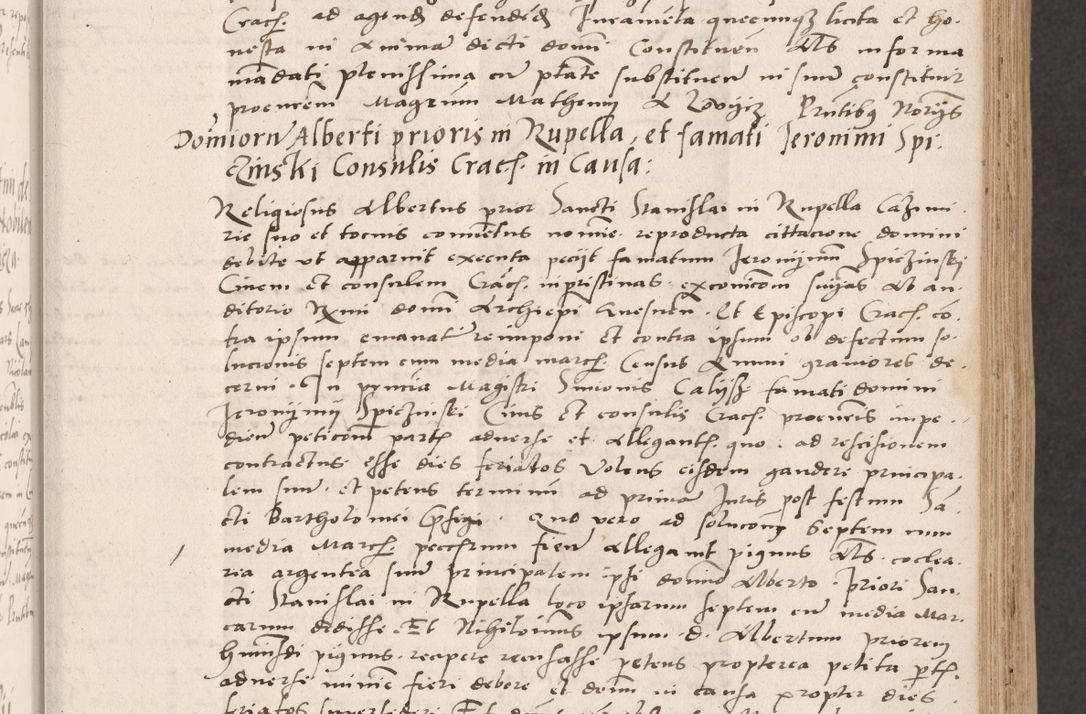 Cracẜ. ad agendũ defendẽd Iuramẽta quecunqꝫ licita et ho-
nesta in Animã dicti domi Constituẽn Als in forma
mãdati plenissima cũ ptãte substituen in suũ constituit
procurẽm Magr̃um Matheum de Lovijcz Pñtibꝯ Nor̃ijs
Domiorũ Alberti prioris in Rupella, et famati Ieronimi Spi-
czinski Consulis Cracẜ. in Causa:
Religiosus Albertus prior Sancti Stanislai in Rupella Cazimi-
rie suo et tocius conuentus noĩe reproducta cittacione domini
debite ut apparuit executa pecijt famatum Ieronijmum Spiczinski
Ciuem et consulem Cracẜ. in pristinas excõicõm suijas ab au-
ditorio Rm̃i domi Archiepi Gnesneñ. Et Episcopi Cracẜ. cõ-
tra ipsum emanat reimponi et contra ipsum ob defectum so-
lucionis septem cum media marcẜ. Census Annui grauiores de-
cerni. In pñcia Magistri Simonis Calijsz famati domini
Ieronijmij Spiczinski Ciuis et consulis Cracẜ. procur̃is impe-
dien peticõm partis aduerse et Allegantẜ. quo ad rescisionem
contractus esse dies feriatos Volens eisdem gaudere principa-
lem suum et petens terminũ ad primã Iuris post festum Sã-
cti Bartholomei p̃figi. Quo vero ad solucõnẽ Septem cum
media Marcẜ. peccẜrum fien Allegauit pignus Als coclea-
ria argentea suũ principalem ipsi domino Alberto Priori San-
cti Stanislai in Rupella loco ipsarum septem cũ media Mar-
carum dedisse. Et Nihilomꝯ ipsum d. Albertum priorem
hmoĩdi pignus recipere recusasse petens propterea petita partẜ.
aduerse minime fieri debere et demũ in causa propter dies
feriatos supersedere. Et